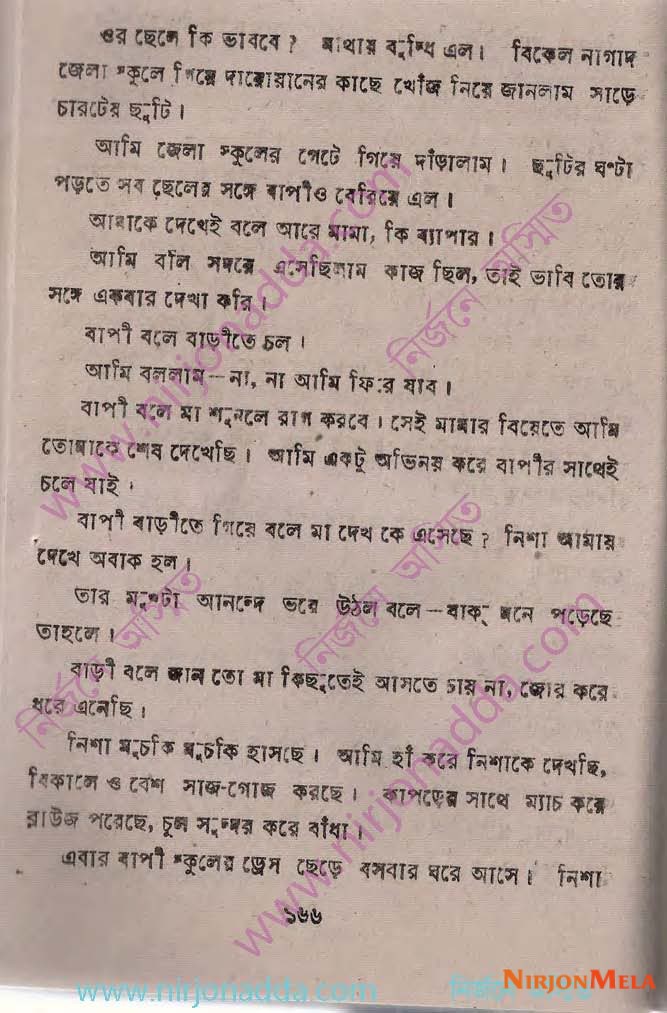 ওর ছেলে কি ভাববে? মাথায় বুদ্ধি এল। বিকেল নাগাদ
জেলা স্কুলে গিয়ে দারোয়ানের কাছে খোঁজ নিয়ে জানলাম সাড়ে
চারটেয় ছুটি।
আমি জেলা স্কুলের গেটে গিয়ে দাঁড়ালাম। ছুটির ঘণ্টা
পড়তে সব ছেলের সঙ্গে বাপীও বেরিয়ে এল।
আমাকে দেখেই বলে আরে মামা, কি ব্যাপার।
আমি বলি সদরে এসেছিলাম কাজ ছিল, তাই ভাবি তোর
সঙ্গে একবার দেখা করি।
বাপী বলে বাড়ীতে চল।
আমি বললাম—না, না আমি ফিরে যাব।
বাপী বলে মা শুনলে রাগ করবে। সেই মামার বিয়েতে আমি
তোমাকে শেষ দেখেছি। আমি একটু অভিনয় করে বাপীর সাথেই
চলে যাই।
বাপী বাড়ীতে গিয়ে বলে মা দেখ কে এসেছে? নিশা আমায়
দেখে অবাক হল।
তার মুখটা আনন্দে ভরে উঠল বলে—যাক্ মনে পড়েছে
তাহলে।
বাড়ী বলে জান তো মা কিছুতেই আসতে চায় না, জোর করে
ধরে এনেছি।
নিশা মুচকি মুচকি হাসছে। আমি হাঁ করে নিশাকে দেখছি,
বিকালে ও বেশ সাজ-গোজ করছে। কাপড়ের সাথে ম্যাচ করে
ব্লাউজ পরেছে, চুল সুন্দর করে বাঁধা।
এবার বাপী স্কুলের ড্রেস ছেড়ে বসবার ঘরে আসে। নিশা
১৬৬
www.nirjonadda.com
নির্জনে অস্মিত
নির্জনে অস্মিত
নির্জনে অস্মিত
www.nirjonadda.com
www.nirjonadda.com
NIRJONMELA